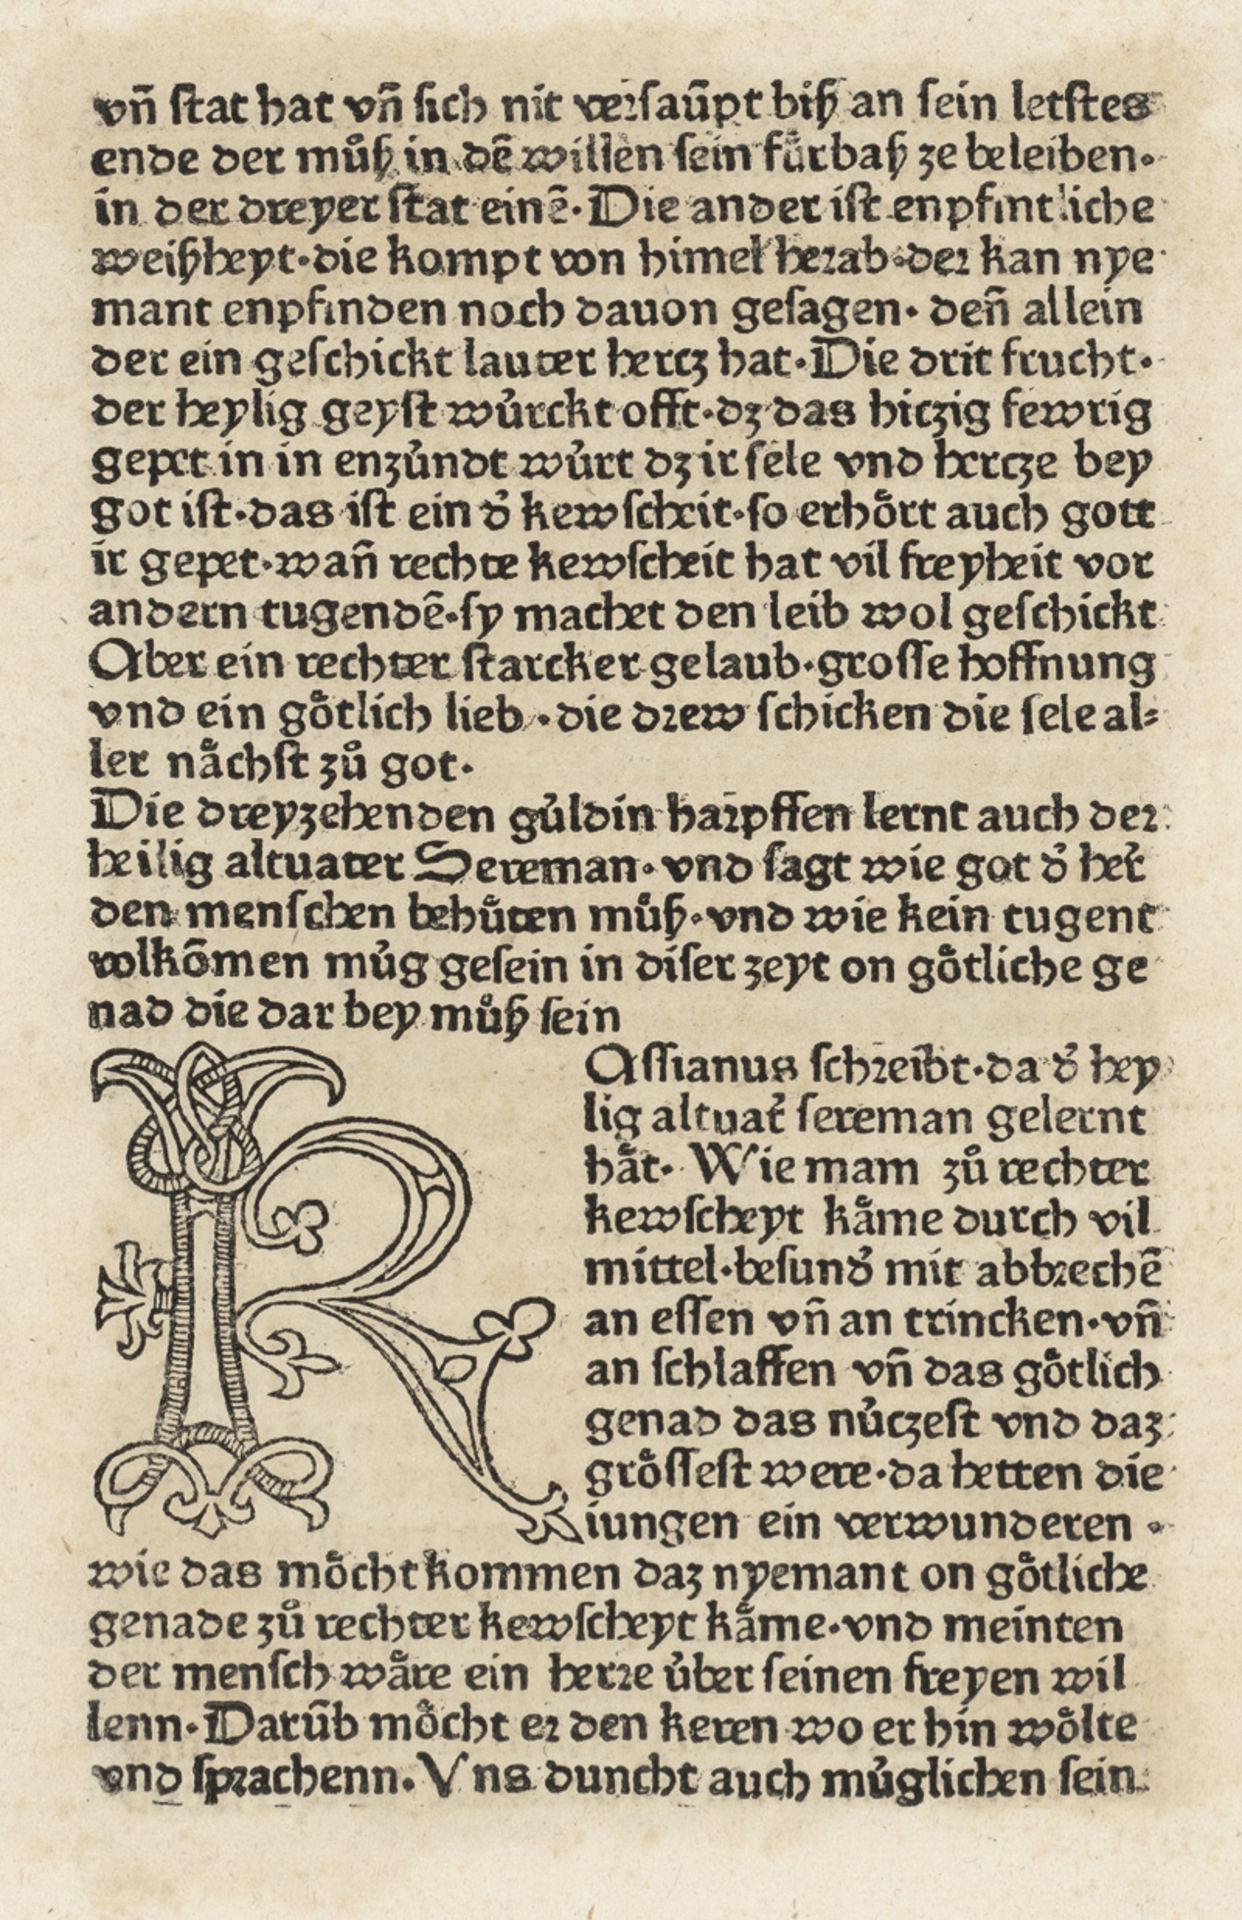 vñ ſtat hat vñ ſich nit verſaūpt biſʒ an ſein letſtes
ende der můſʒ in dē willen ſein fu̔rbaſʒ ze beleiben·
in der dreyer ſtat einē· Die ander iſt enpfintliche
weiſʒheyt·die kompt von himel herab·der kan nye
mant enpfinden noch dauon geſagen· deñ allein
der ein geſchickt lauter hertʒ hat·Die drit frucht·
der heylig geyſt wu̔rckt offt·dʒ das hitʒig fewrig
gepet in in enʒu̔ndt wu̔rt dʒ ir ſele vnd hertʒe bey
got iſt·das iſt ein d̕ kewſcheit·ſo erhoͤrt auch gott
ir gepet·wañ rechte kewſcheit hat vil freyheit vor
andern tugendē·ſy machet den leib wol geſchickt
Aber ein rechter ſtarcker gelaub·groſſe hoffnung
vnd ein goͤtlich lieb·die drew ſchicken die ſele al⸗
ler naͤchſt ʒů got·
Die dreyʒehenden gu̔ldin harpffen lernt auch der
heilig altuater Sereman·vnd ſagt wie got d̕ her̕
den menſchen behuͤten můſʒ·vnd wie kein tugent
volkōmen mu̔g geſein in diſer ʒeyt on goͤtliche ge
nad die dar bey můſʒ ſein
KAſſianus ſchreibt·da d̕ hey
lig altuat̕ ſereman gelernt
haͤt· Wie mam ʒů rechter
kewſcheyt kaͤme durch vil
mittel·beſund̕ mit abbrechē
an eſſen vñ an trincken·vñ
an ſchlaffen vñ das goͤtlich
genad das nu̔tʒeſt vnd daʒ
groͤſſeſt were·da hetten die
iungen ein verwunderen ·
wie das moͤcht kommen daʒ nyemant on goͤtliche
genade ʒů rechter kewſcheyt kaͤme·vnd meinten
der menſch waͤre ein herre u̔ber ſeinen freyen wil
lenn·Darūb moͤcht er den keren wo er hin woͤlte
vnd ſprachenn·Vns duncht auch mu̔glichen ſein